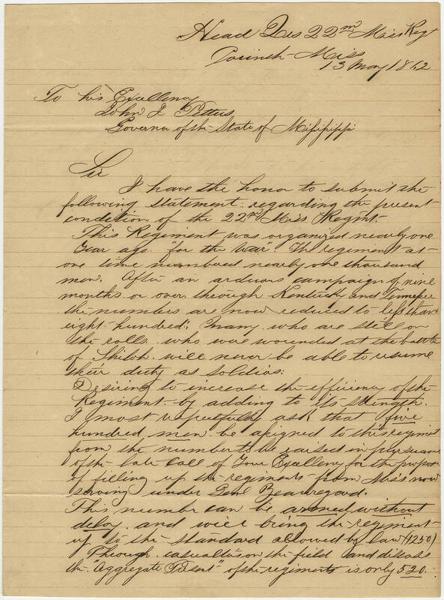 Head Qrs 22nd Miss Reg
Corinth Miss
13 May 1862
To his Excellency
John J Pettus
Governor of the State of Mississippi
Sir
I have the honor to submit the
following statement regarding the present
condition of the 22nd Miss Regmt.
This Regiment was organized nearly one
year ago "for the War". The regiment at
one time numbered nearly one thousand
men. After an arduous campaign of nine
months or over through Kentucky and Tennessee
the numbers are now reduced to less than
eight hundred; many who are still on
the rolls who were wounded at the battle
of Shiloh will never be able to resume
their duty as soldiers:
Desiring to increase the efficiency of the
Regiment by adding to its strength
I most respectfully ask that five
hundred men be assigned to this regiment
from the number to be raised in pursuance
of the late Call of Your Excellency for the purpose
of filling up the regiments from Miss now
serving under Genl Beauregard.
This number can be armed without
delay and will bring the regiment
up to the standard allowed by law (1250)
Through casualties on the field and disease
the "Aggregate Present" of the regiment is only 520.